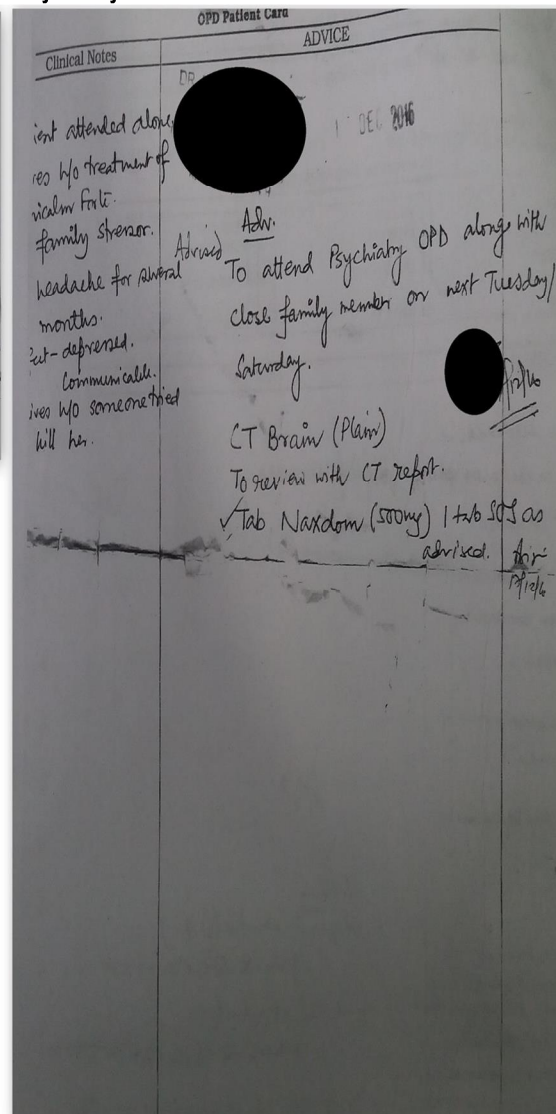 OPD Patient Card
Clinical Notes
ADVICE
DR
DEC 2016
ient attended alone.
res h/o treatment of
nicalm forte.
family stressor.
headache for several
months.
depressed.
Communicable.
ives h/o someone tried
kill her.
Adv.
Advised
To attend Psychiatry OPD along with
close family member on next Tuesday/
Saturday.
CT Brain (Plain)
To review with CT report.
✓Tab Naxdom (500mg) 1 tab SOS as
advised.